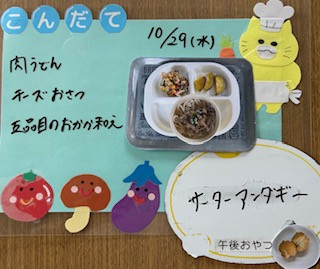 こんだて
10/29(水)
肉うどん
チーズおさつ
五品目のおかか和え
サーターアンダギー
午後おやつ